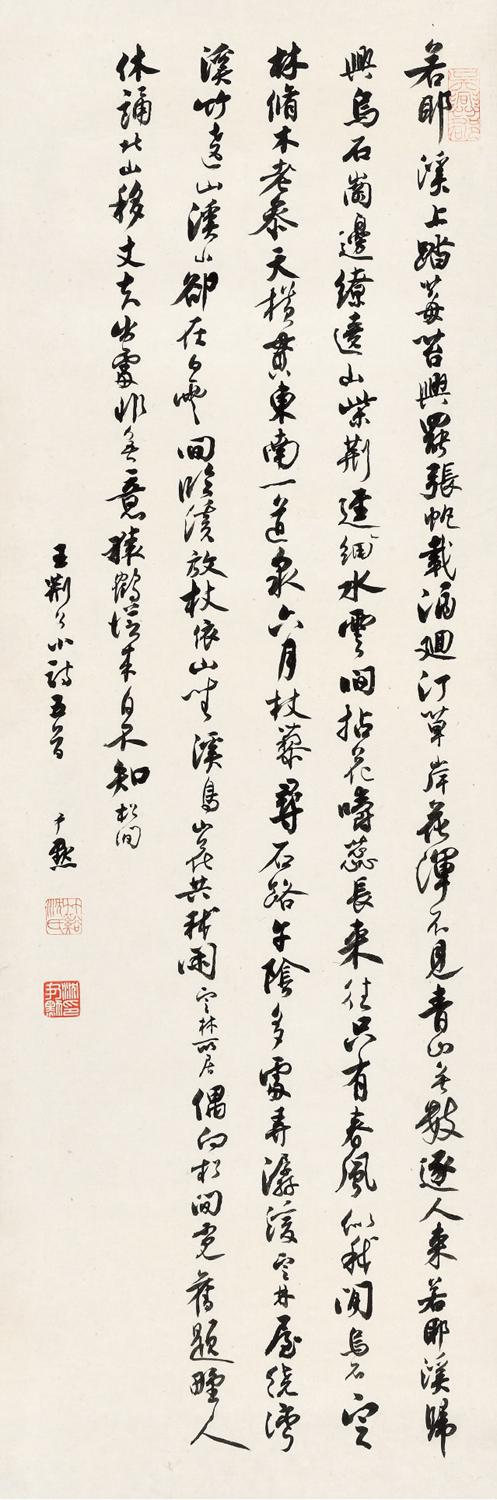 若耶溪上踏莓苔興罷張帆載酒廻汀草岸花渾不見青山無數逐人來若耶溪歸
興烏石崗邊繚遶山柴荆逕細水雲間拈花嚼蕊長來往只有春風似我閒烏石定
林脩木老參天橫貫東南一道泉六月杖藜尋石路午陰多處弄潺湲定林屋繞灣
溪竹遶山溪山卻在白雲間臨溪放杖依山坐溪鳥山花共我閒定林所居偶向松間覓舊題野人
休誦北山移丈夫出處非無意猿鶴從來自不知松間
王荆公小詩五首 尹默
竹谿沈氏
沈尹默印